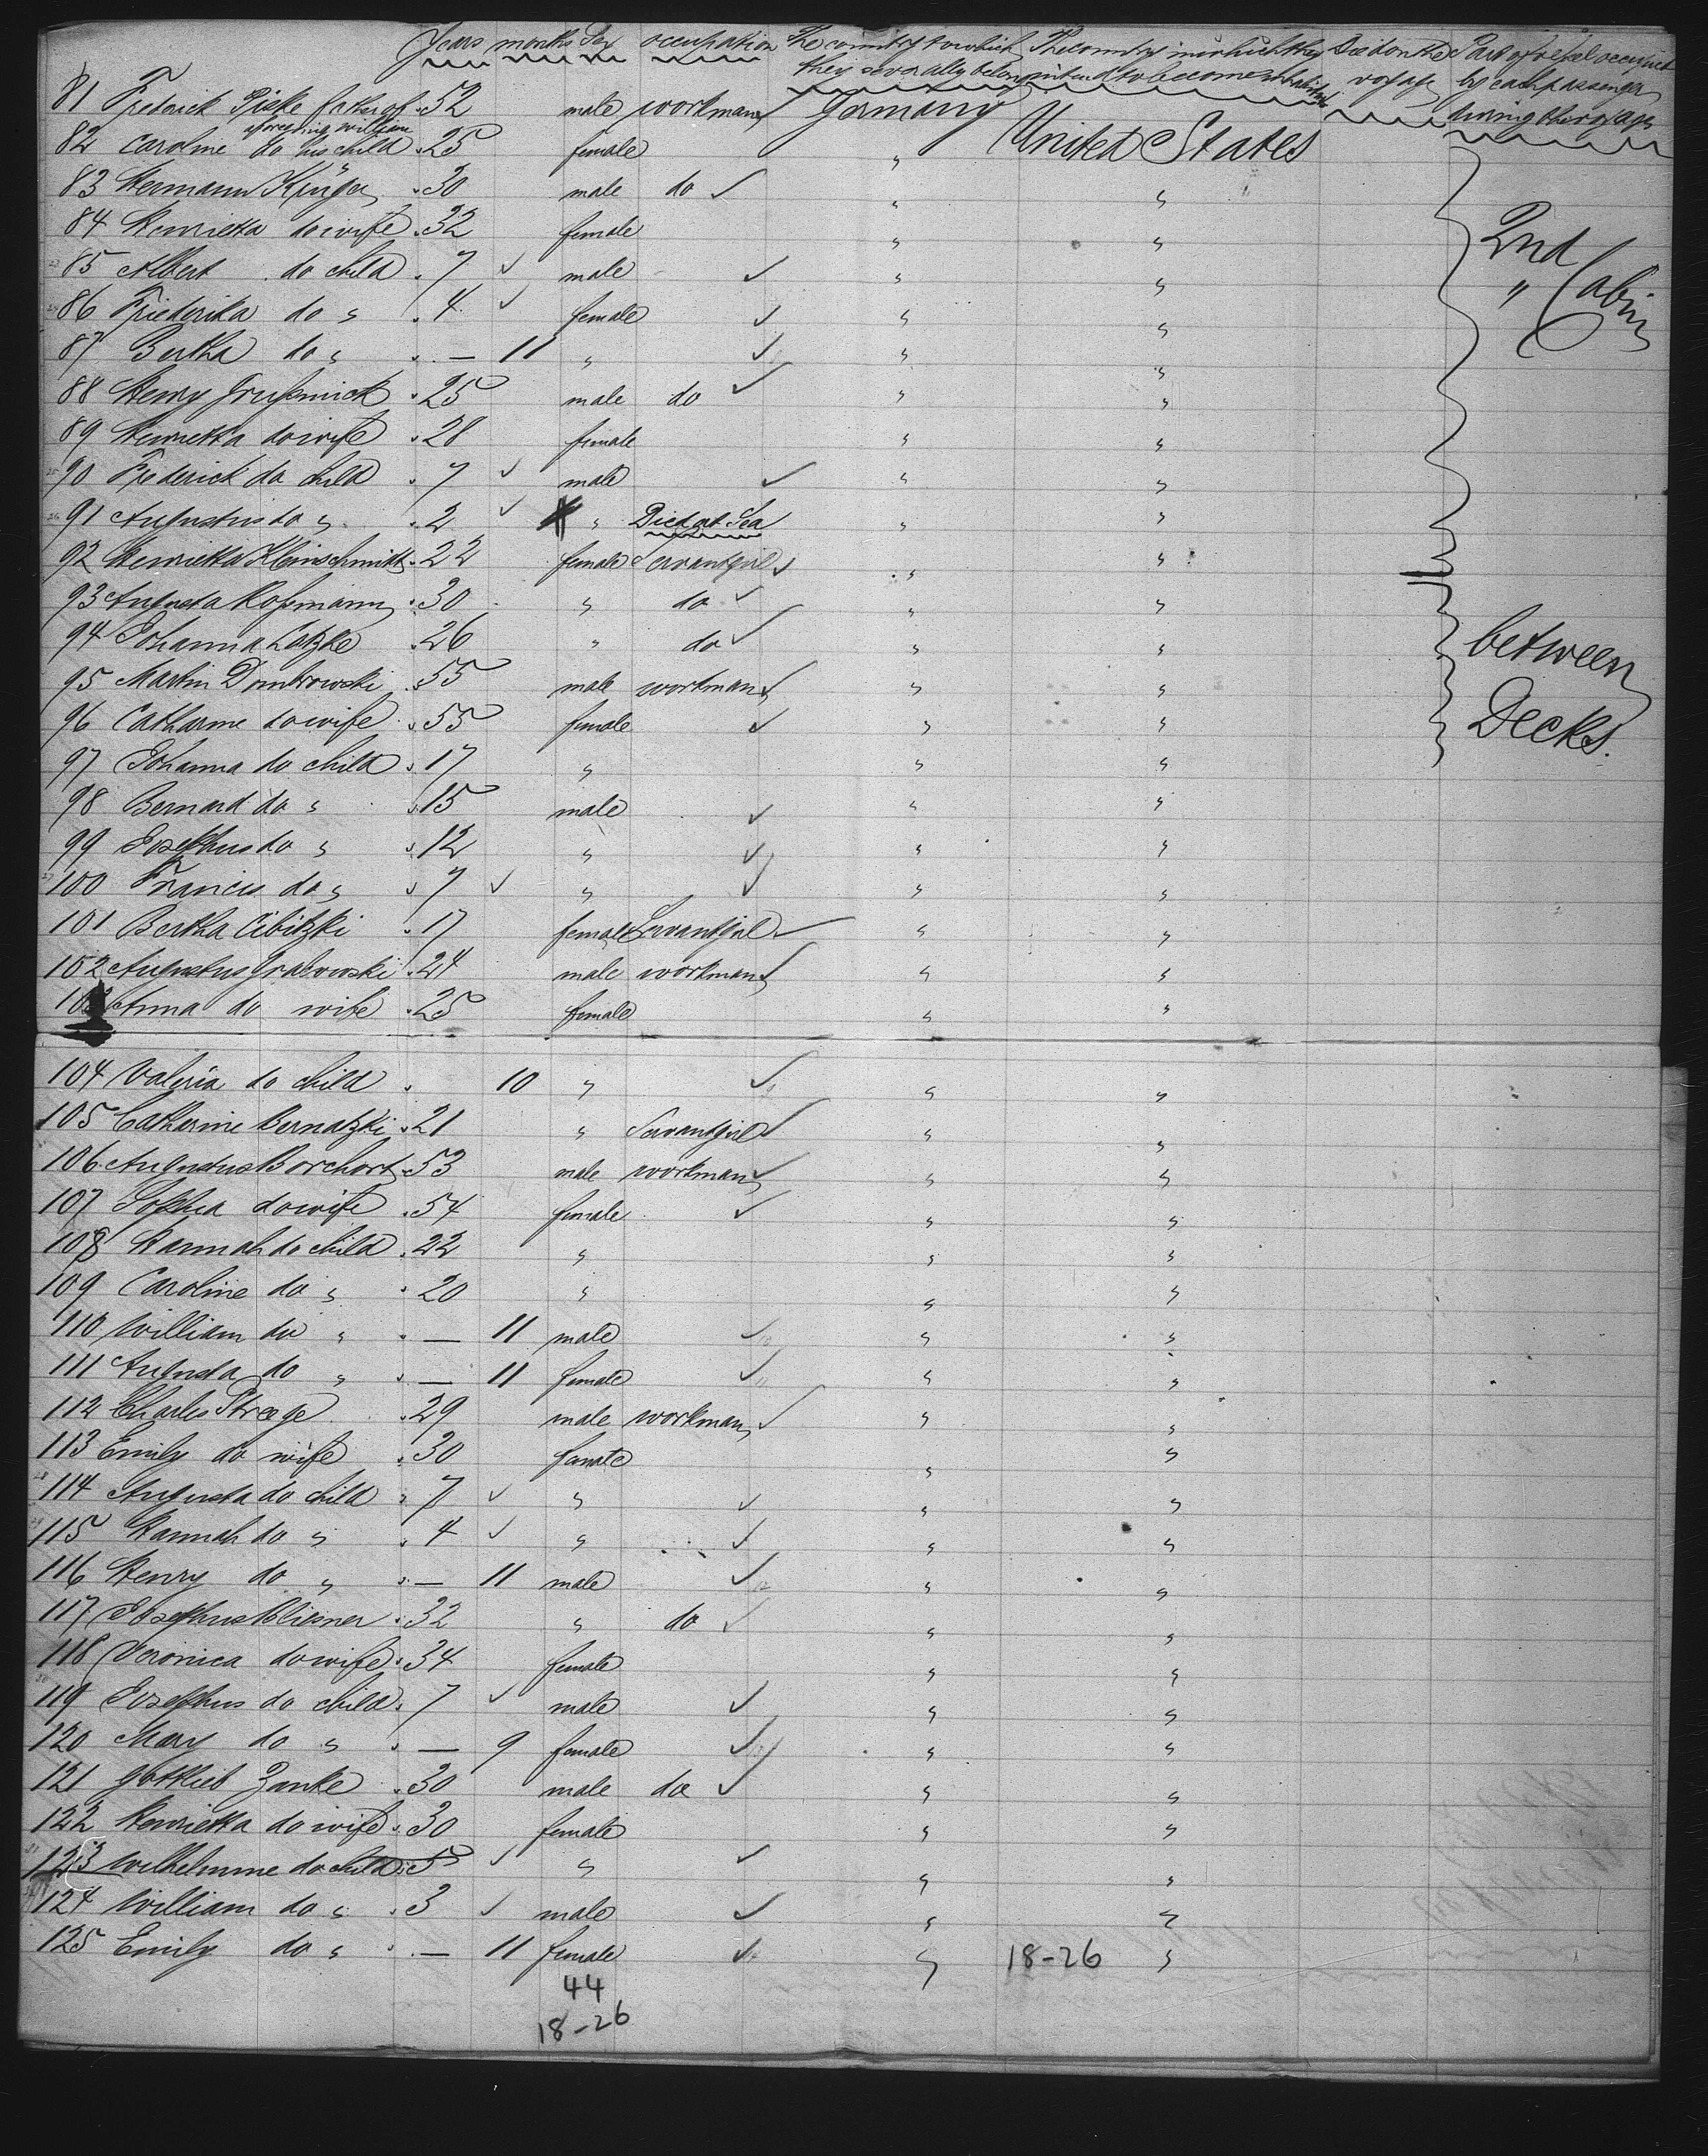 Years months Sex occupation The country to which The country in which they Died on the Part of vessel occupied
they severally belong intend to become inhabitants voyage by each passenger
during the voyage
81 Frederick Piske father of 52 male workman Germany
aforegoing william
82 Caroline do his child 25 female " United States
83 Hermann Krüger 30 male do " "
84 Henrietta do wife 32 female " "
2nd
85 Albert do child 7 male " "
" Cabin
86 Friederika do " 4 female " "
87 Bertha do " — 11 " " "
88 Henry 25 male do " "
89 Henrietta do wife 28 female " "
90 Frederick do child 7 male " "
91 Augustus do " 2 " Died at Sea " "
92 Henrietta Kleinschmidt 22 female Servantgirl " "
93 Augusta Roßmann 30 " do " "
94 Johanna Latzke 26 " do " "
between
95 Martin Dombrowski 55 male workman " "
96 Catharine do wife 55 female " "
Decks.
97 Johanna do child 17 " " "
98 Bernard do " 15 male " "
99 Josephus do " 12 " " "
100 Francis do " 7 " " "
101 Bertha Cibitzki 17 female Servantgirl " "
102 Augustus Grabowski 24 male workman " "
103 Anna do wife 25 female " "
104 Valeria do child 10 " " "
105 Catharine Bernatzki 21 " Servantgirl " "
106 Augustus Borchort 53 male workman " "
107 Sophia do wife 54 female " "
108 Hannah do child 22 " " "
109 Caroline do " 20 " " "
110 William do " — 11 male " "
111 Augusta do " — 11 female " "
112 Charles Streege 29 male workman " "
113 Emily do wife 30 female " "
114 Augusta do child 7 " " "
115 Hannah do " 4 " " "
116 Henry do " — 11 male " "
117 Josephus Bliesner 32 " do " "
118 Veronica do wife 34 female " "
119 Josephus do child 7 male " "
120 Mary do " — 9 female " "
121 Gottlieb Zanke 30 male do " "
122 Henrietta do wife 30 female " "
123 Wilhelmine do child 5 " " "
124 William do " 3 male " "
125 Emily do " — 11 female " 18-26 "
44
18-26